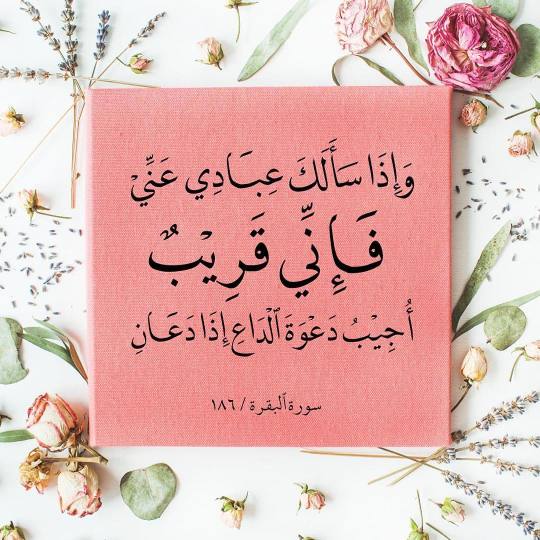 وَإِذَا سَأَلَكَ عِبَادِي عَنِّيْ
فَإِنِّي قَرِيْبٌ
أُجِيْبُ دَعْوَةَ ٱلْدَاعِ إِذَا دَعَانِ
سورة ٱلبقرة / ١٨٦